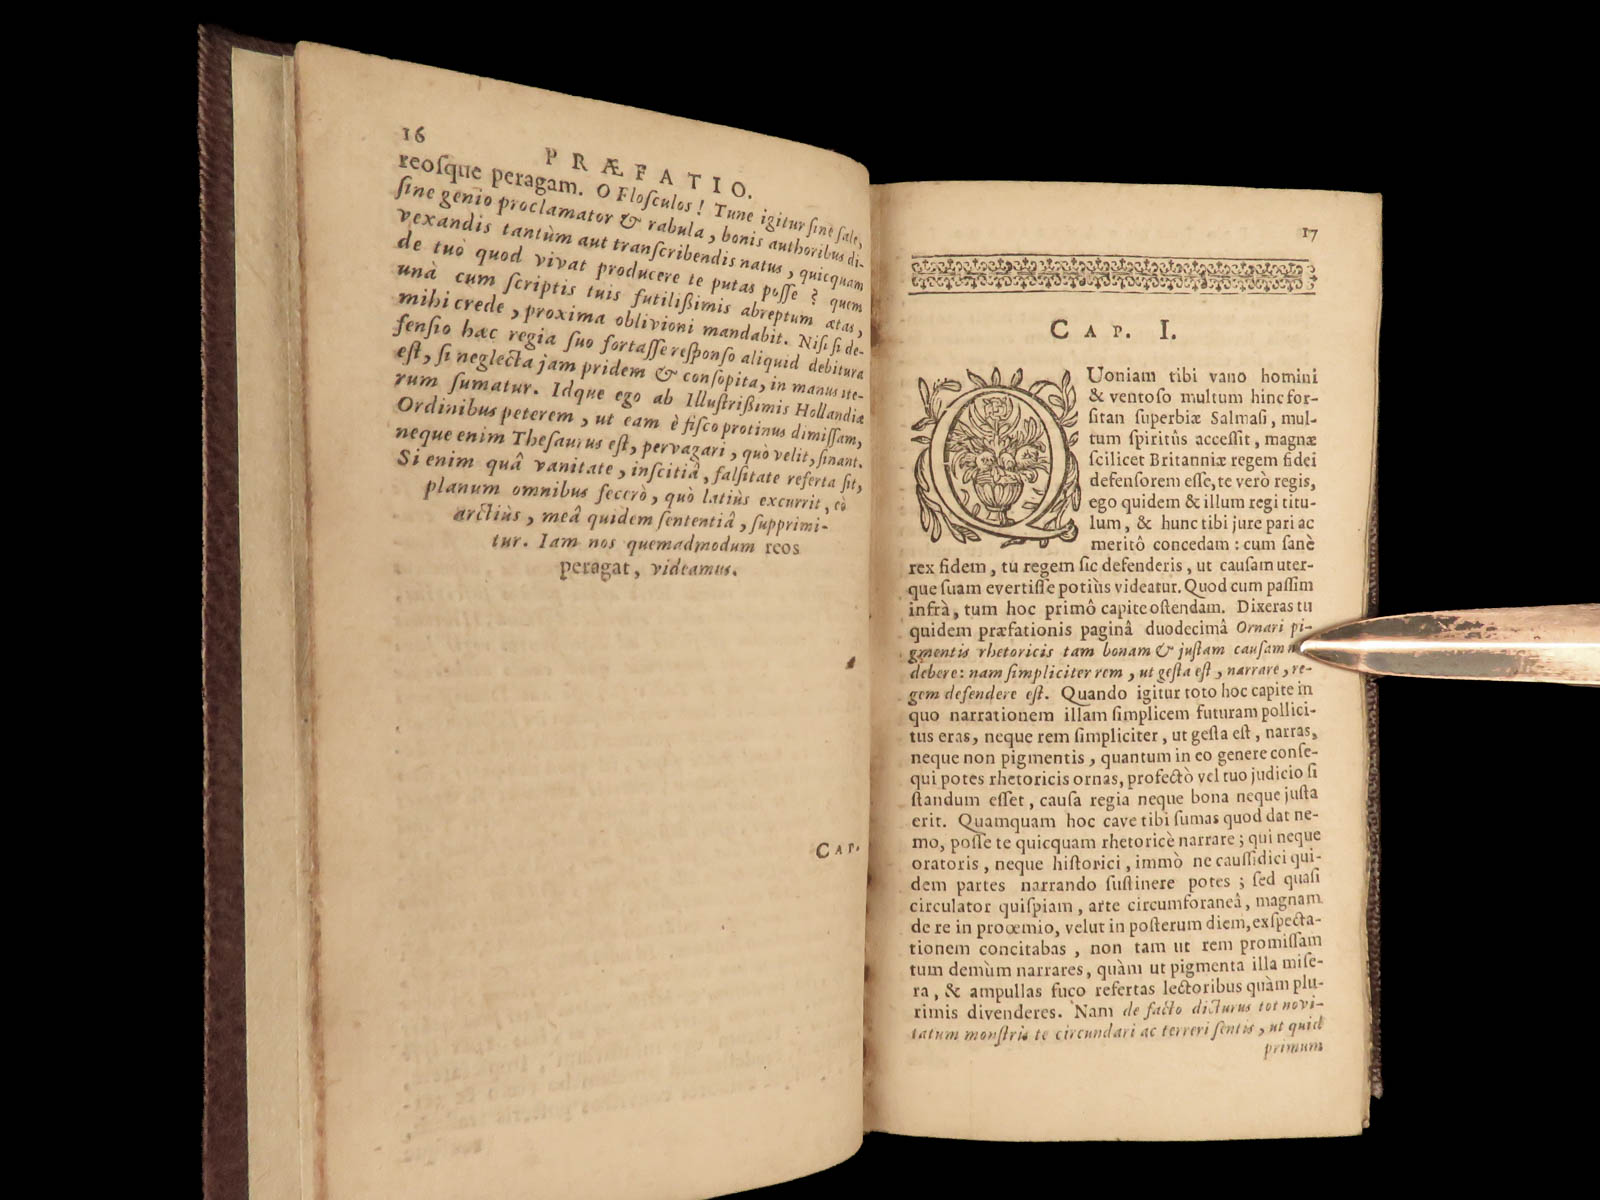 16
PRÆFATIO.
reoſque peragam. O Floſculos! Tune igitur ſine ſale,
ſine genio proclamator & rabula, bonis authoribus di-
vexandis tantùm aut tranſcribendis natus, quicquam
de tuò quod vivat producere te putas poſſe? quem
unà cum ſcriptis tuis futiliſſimis abreptum ætas,
mihi crede, proxima oblivioni mandabit. Niſi ſi de-
fenſio hæc regia ſuo fortaſſe reſponſo aliquid debitura
eſt, ſi neglecta jam pridem & conſopita, in manus ite-
rum ſumatur. Idque ego ab Illuſtriſſimis Hollandiæ
Ordinibus peterem, ut eam è fiſco protinus dimiſſam,
neque enim Theſaurus eſt, pervagari, quò velit, ſinant.
Si enim quâ vanitate, inſcitiâ, falſitate referta ſit,
planum omnibus fecerò, quò latiùs excurrit, eò
arctiùs, meâ quidem ſententiâ, ſupprimi-
tur. Iam nos quemadmodum reos
peragat, videamus.
CAP.
17
CAP. I.
QUoniam tibi vano homini
& ventoſo multum hinc for-
ſitan ſuperbiæ Salmaſi, mul-
tum ſpiritûs acceſſit, magnæ
ſcilicet Britanniæ regem fidei
defenſorem eſſe, te verò regis,
ego quidem & illum regi titu-
lum, & hunc tibi jure pari ac
meritô concedam: cum ſanè
rex fidem, tu regem ſic defenderis, ut cauſam uter-
que ſuam evertiſſe potiùs videatur. Quod cum paſſim
infrà, tum hoc primô capite oſtendam. Dixeras tu
quidem præfationis paginâ duodecimâ Ornari pi-
gmentis rhetoricis tam bonam & juſtam cauſam
debere: nam ſimpliciter rem, ut geſta eſt, narrare, re-
gem defendere eſt. Quando igitur toto hoc capite in
quo narrationem illam ſimplicem futuram pollici-
tus eras, neque rem ſimpliciter, ut geſta eſt, narras,
neque non pigmentis, quantum in eo genere conſe-
qui potes rhetoricis ornas, profectò vel tuo judicio ſi
ſtandum eſſet, cauſa regia neque bona neque juſta
erit. Quamquam hoc cave tibi ſumas quod dat ne-
mo, poſſe te quicquam rhetoricè narrare; qui neque
oratoris, neque hiſtorici, immò ne cauſſidici qui-
dem partes narrando ſuſtinere potes; ſed quaſi
circulator quiſpiam, arte circumforaneâ, magnam
de re in proœmio, velut in poſterum diem, exſpecta-
tionem concitabas, non tam ut rem promiſſam
tum demùm narrares, quàm ut pigmenta illa miſe-
ra, & ampullas fuco refertas lectoribus quàm plu-
rimis divenderes. Nam de facto dicturus tot novi-
tatum monſtris te circundari ac terreri ſentis, ut quid
primum